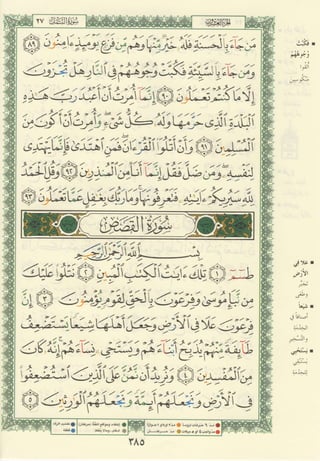 الجزء العشرون
سورة النمل ٢٧
مَن جَآءَ بِٱلْحَسَنَةِ فَلَهُۥ خَيْرٌ مِّنْهَا وَهُم مِّن فَزَعٍ يَوْمَئِذٍ ءَامِنُونَ ٨٩
وَمَن جَآءَ بِٱلسَّيِّئَةِ فَكُبَّتْ وُجُوهُهُمْ فِى ٱلنَّارِ هَلْ تُجْزَوْنَ
إِلَّا مَا كُنتُمْ تَعْمَلُونَ ٩٠ إِنَّمَآ أُمِرْتُ أَنْ أَعْبُدَ رَبَّ هَٰذِهِ
ٱلْبَلْدَةِ ٱلَّذِى حَرَّمَهَا وَلَهُۥ كُلُّ شَىْءٍ وَأُمِرْتُ أَنْ أَكُونَ مِنَ
ٱلْمُسْلِمِينَ ٩١ وَأَنْ أَتْلُوَا۟ ٱلْقُرْءَانَ فَمَنِ ٱهْتَدَىٰ فَإِنَّمَا يَهْتَدِى
لِنَفْسِهِۦ وَمَن ضَلَّ فَقُلْ إِنَّمَآ أَنَا۠ مِنَ ٱلْمُنذِرِينَ ٩٢ وَقُلِ ٱلْحَمْدُ
لِلَّهِ سَيُرِيكُمْ ءَايَٰتِهِۦ فَتَعْرِفُونَهَا وَمَا رَبُّكَ بِغَٰفِلٍ عَمَّا تَعْمَلُونَ ٩٣
سُورَةُ القَصَصِ
بِسْمِ ٱللَّهِ ٱلرَّحْمَٰنِ ٱلرَّحِيمِ
طسٓمٓ ١ تِلْكَ ءَايَٰتُ ٱلْكِتَٰبِ ٱلْمُبِينِ ٢ نَتْلُوا۟ عَلَيْكَ
مِن نَّبَإِ مُوسَىٰ وَفِرْعَوْنَ بِٱلْحَقِّ لِقَوْمٍ يُؤْمِنُونَ ٣ إِنَّ
فِرْعَوْنَ عَلَا فِى ٱلْأَرْضِ وَجَعَلَ أَهْلَهَا شِيَعًا يَسْتَضْعِفُ
طَآئِفَةً مِّنْهُمْ يُذَبِّحُ أَبْنَآءَهُمْ وَيَسْتَحْىِۦ نِسَآءَهُمْ إِنَّهُۥ كَانَ
مِنَ ٱلْمُفْسِدِينَ ٤ وَنُرِيدُ أَن نَّمُنَّ عَلَى ٱلَّذِينَ ٱسْتُضْعِفُوا۟
فِى ٱلْأَرْضِ وَنَجْعَلَهُمْ أَئِمَّةً وَنَجْعَلَهُمُ ٱلْوَٰرِثِينَ ٥
٣٨٥
فكبت
وجوههم
ألقوا
منكوسين
علا في
الأرض
تجبر
وطغى
شيعا
أصنافا في
الخدمة
والتسخير
يستحيي
يستبقي
للخدمة